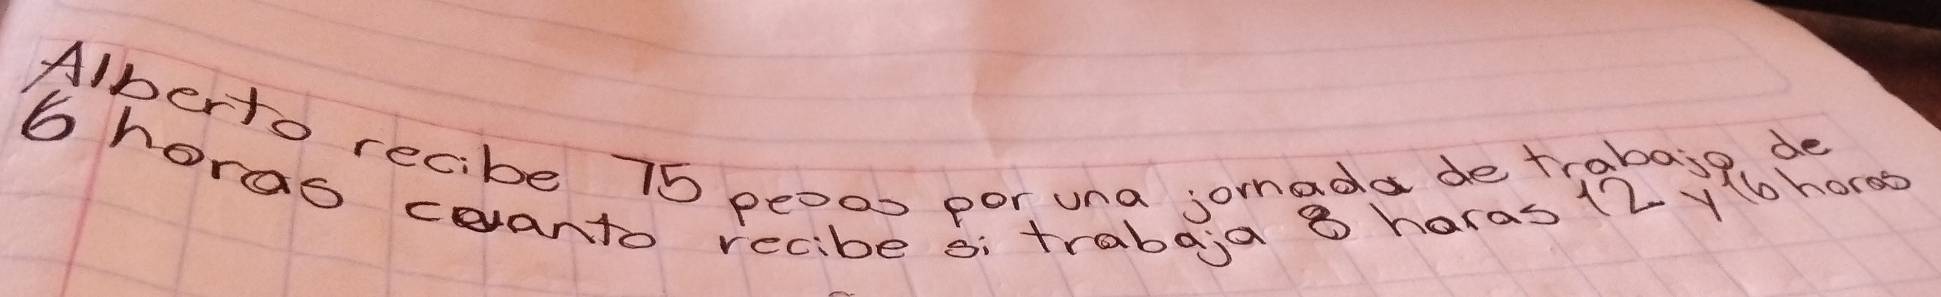 Alberto recibe 75 pesos por una jornada de trabajo de
6 horas cuanto recibe si trabaja 8 horas 12 y 16 horas